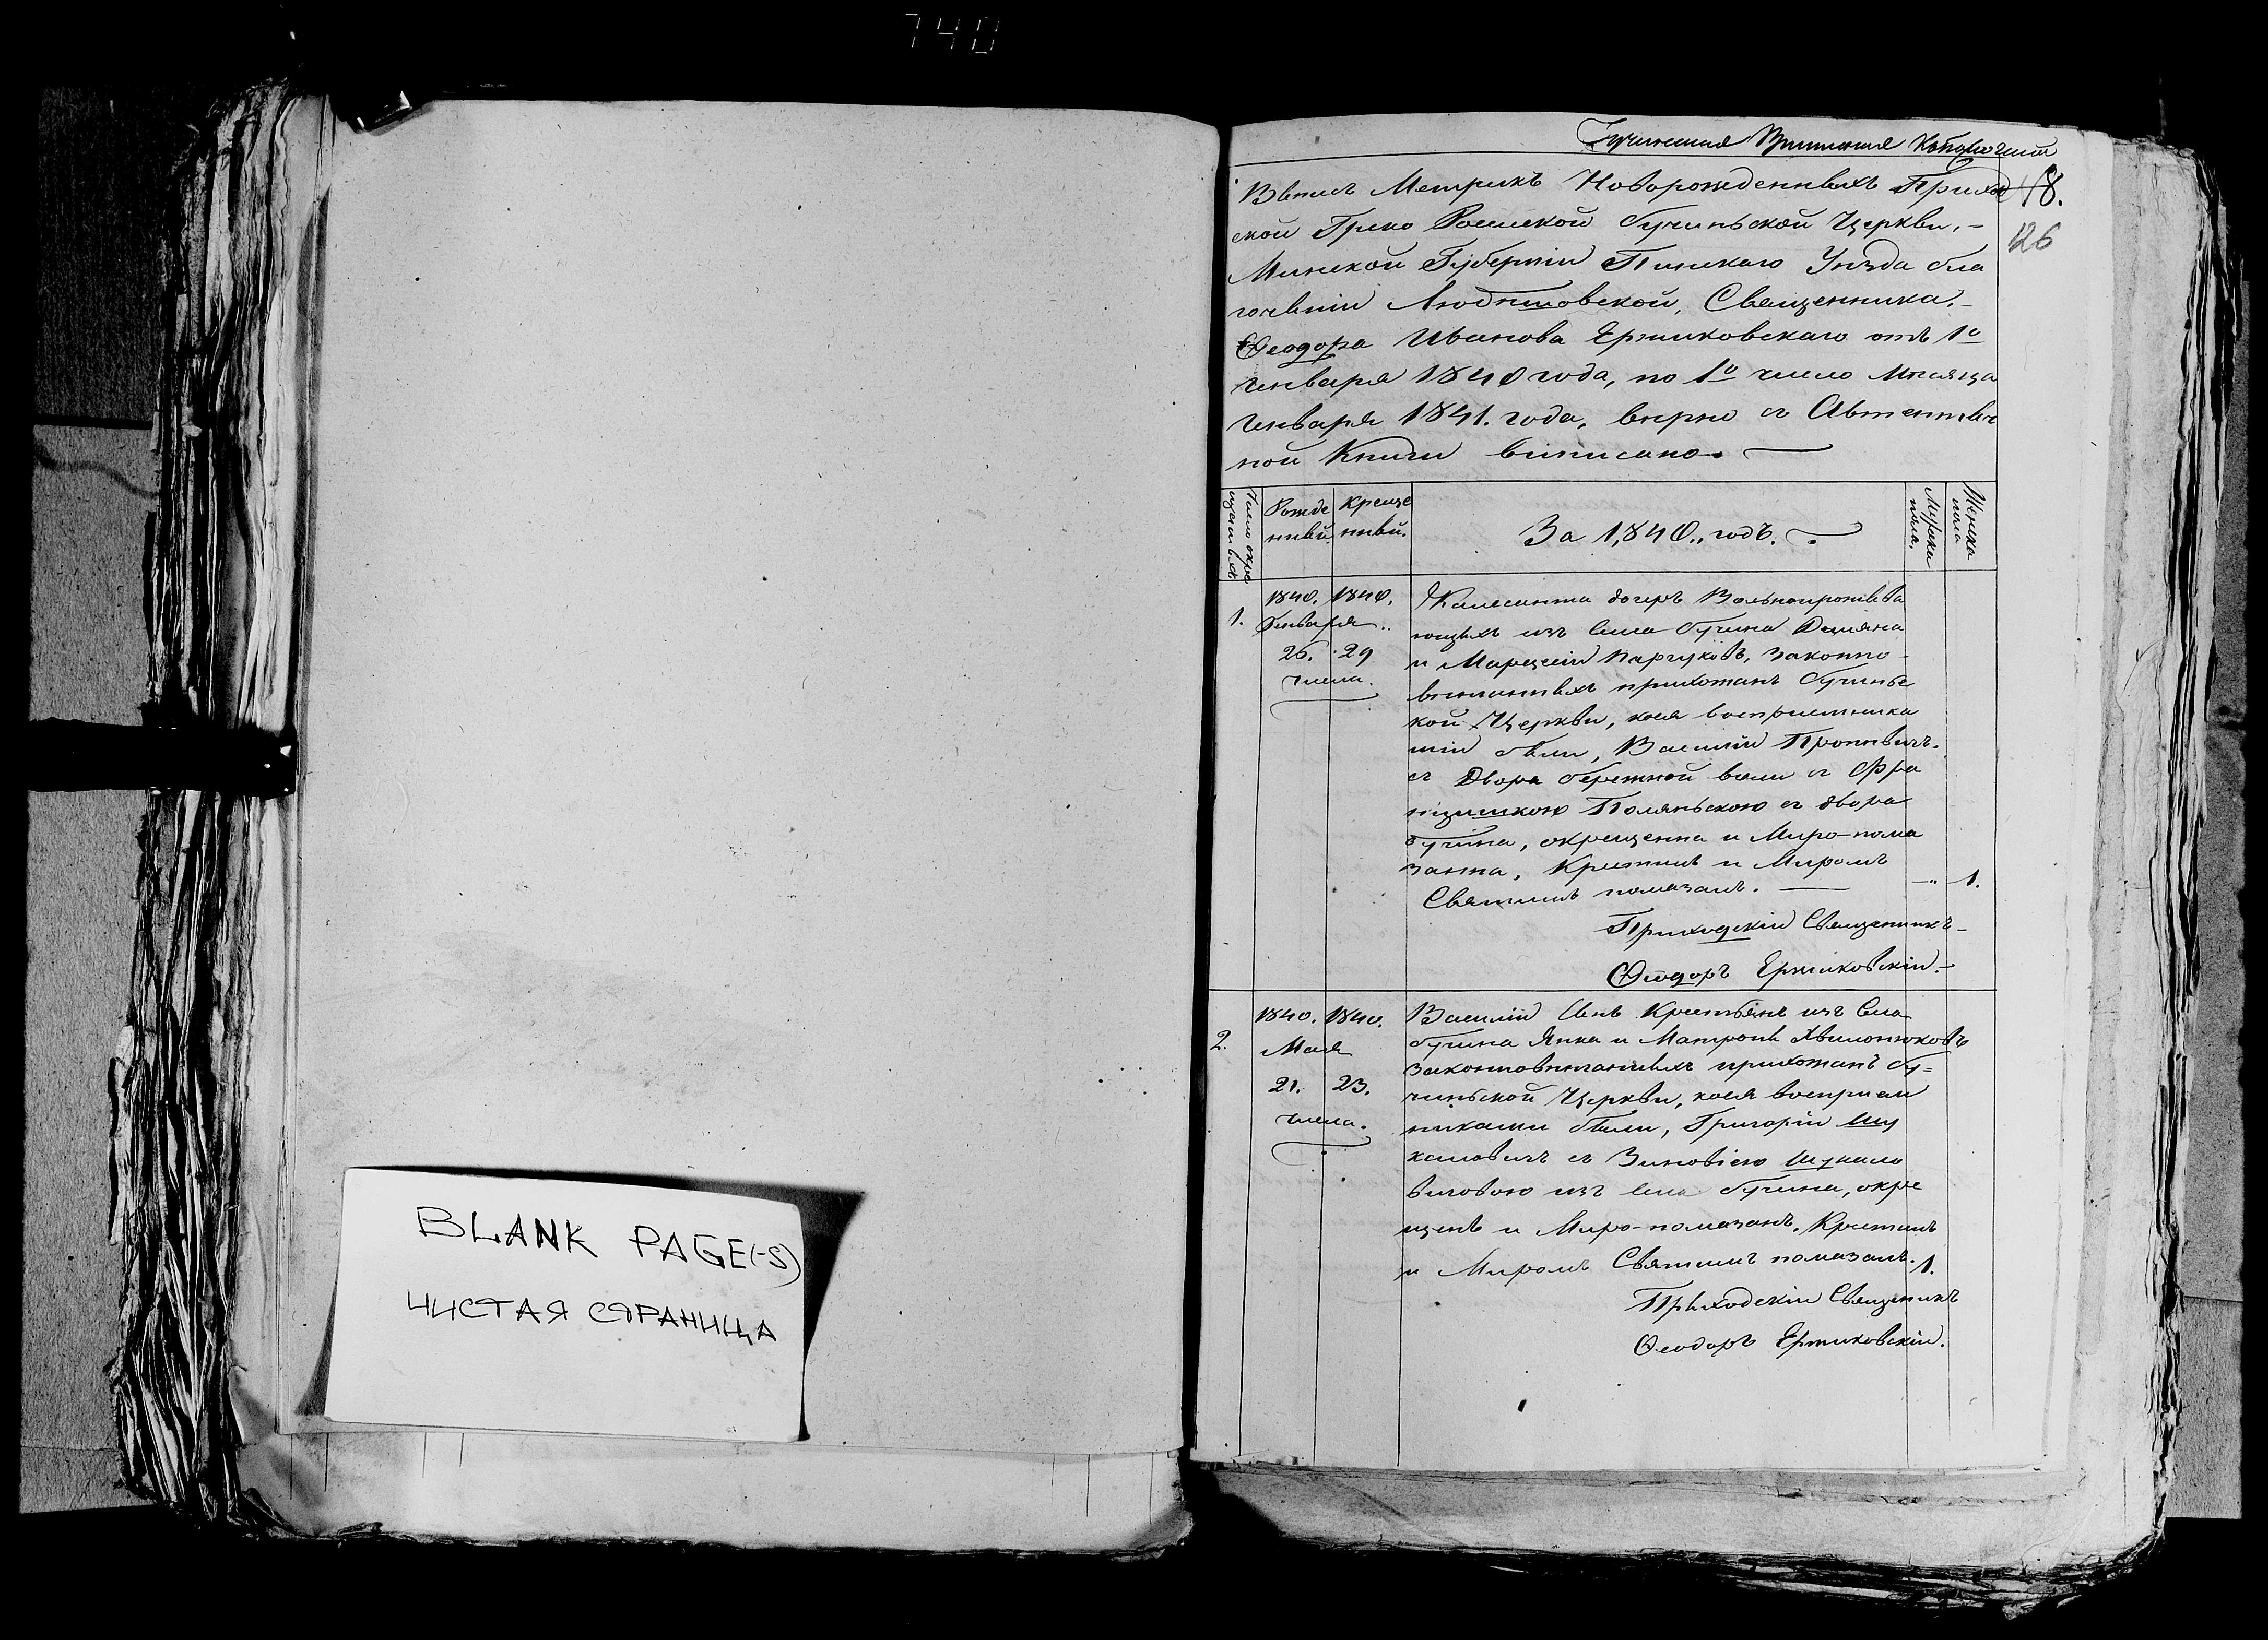 740
BLANK PAGE(-S)
ЧИСТАЯ СТРАНИЦА
18.
126
Выпись Метрикъ Новорожденныхъ Приход
ской Греко Россiиской Бучиньской Церкви,-
Минской Губернiи Пинскаго Уѣзда бла
гочынiи Любѣшовской, Священника,-
Ѳеодора Иванова Ержиковскаго отъ 1го
Генваря 1840 года, по 1о число Мѣсяца
Генваря 1841. года, вѣрно съ Автентыч
ной Книги виписано.
Число окре
щенныхъ
Рожде
нный
Креще
нный.
За 1,840., годъ.
Мужска
пола,
Женска
пола
1.
1840. 1840.
Генваря..
26. 29
числа.
дочеръ Вольнопрожива
ющыхъ изъ Села Бучина Демяна
и Марцелiи Парчуковъ, законно-
вѣнчанныхъ прихожанъ Бучиньс
кой Церкви, коея воспрiемника
мiи были, Василiй
съ Двора Бережной воли съ Фра
нцишкою Поляньскою съ двора
Бучина, окрещенна и Миро-пома
занна, Крестилъ и Миромъ
Святимъ помазалъ. — „ 1.
Приходскiй Священникъ-
Ѳеодоръ Ержиковскiй.-
2.
1840. 1840.
Мая
21. 23.
числа.
Василiй Сынъ Крестьянъ изъ Села
Бучина Янка и Матроны Хвилонюковъ
законновѣнчанныхъ прихожанъ Бу-
чиньской Церкви, коея воспрiем
никами были, Григорiй Шу
каловичъ съ Зиновiею Шукало
вичовою изъ Села Бучина, окре
щенъ и Миро-помазанъ, Крестилъ
и Миромъ Святимъ помазалъ. 1.
Приходскiй Священникъ
Ѳеодоръ Ержиковскiй.